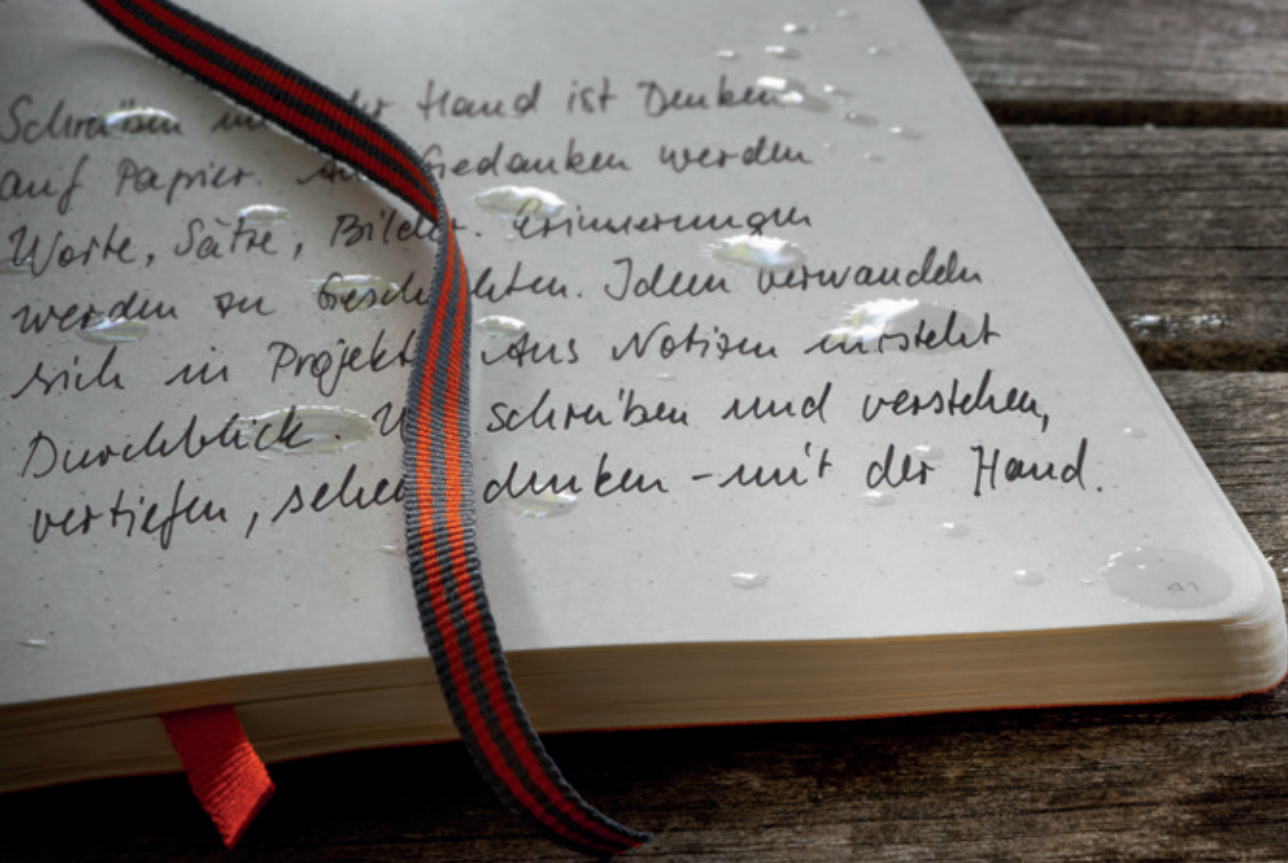 Schreiben mit der Hand ist Denken
auf Papier. Aus Gedanken werden
Worte, Sätze, Bilder. Erinnerungen
werden zu Geschichten. Ideen verwandeln
sich in Projekte. Aus Notizen entsteht
Durchblick. Wir schreiben und verstehen,
vertiefen, sehen, denken – mit der Hand.
41